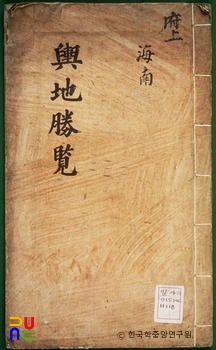 府上
海南
輿地勝覧
ⓒ 한국학중앙연구원